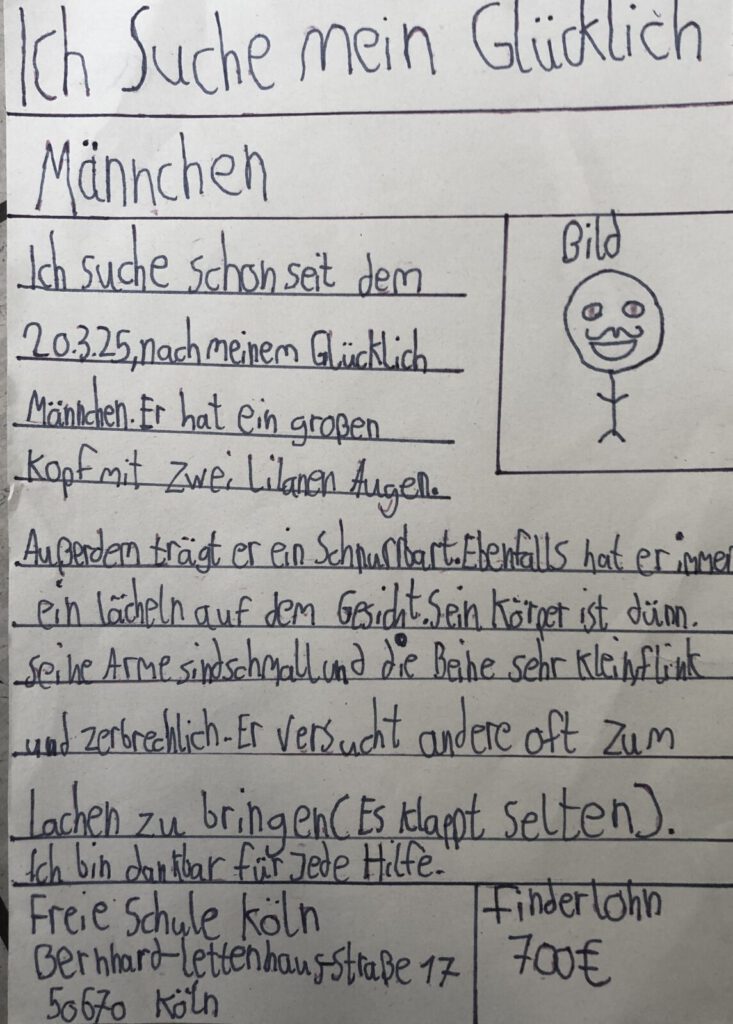 Ich Suche mein Glücklich
Männchen
Bild
Ich suche schon seit dem
20.3.25, nach meinem Glücklich
Männchen. Er hat ein großen
Kopf mit zwei Lilanen Augen.
Außerdem trägt er ein Schnurrbart. Ebenfalls hat er immer
ein lächeln auf dem Gesicht. Sein Körper ist dünn.
seine Arme sind schmall und die Beine sehr klein, flink
und zerbrechlich. Er versucht andere oft zum
lachen zu bringen (Es klappt selten).
Ich bin dankbar für jede Hilfe.
Freie Schule Köln
Bernhard-Lettenhaus-Straße 17
50670 Köln
Finderlohn
700€